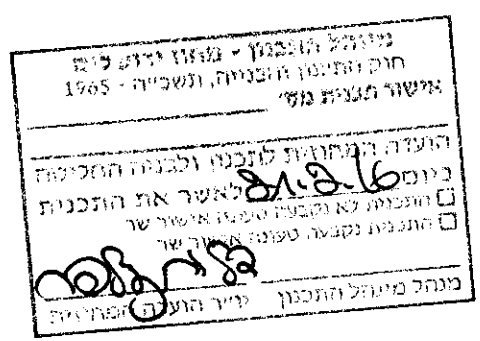 מינהל התכנון - מחוז ירושלים
חוק התיכנון והבנייה, תשכ״ה - 1965
אישור תכנית מס׳
הועדה המחוזית לתכנון ולבניה החליטה
ביום 21.2.16 לאשר את התכנית
☐ התכנית לא נקבעה טעונה אישור שר
☐ התכנית נקבעה טעונה אישור שר
מנהל מינהל התכנון יו״ר הועדה המחוזית